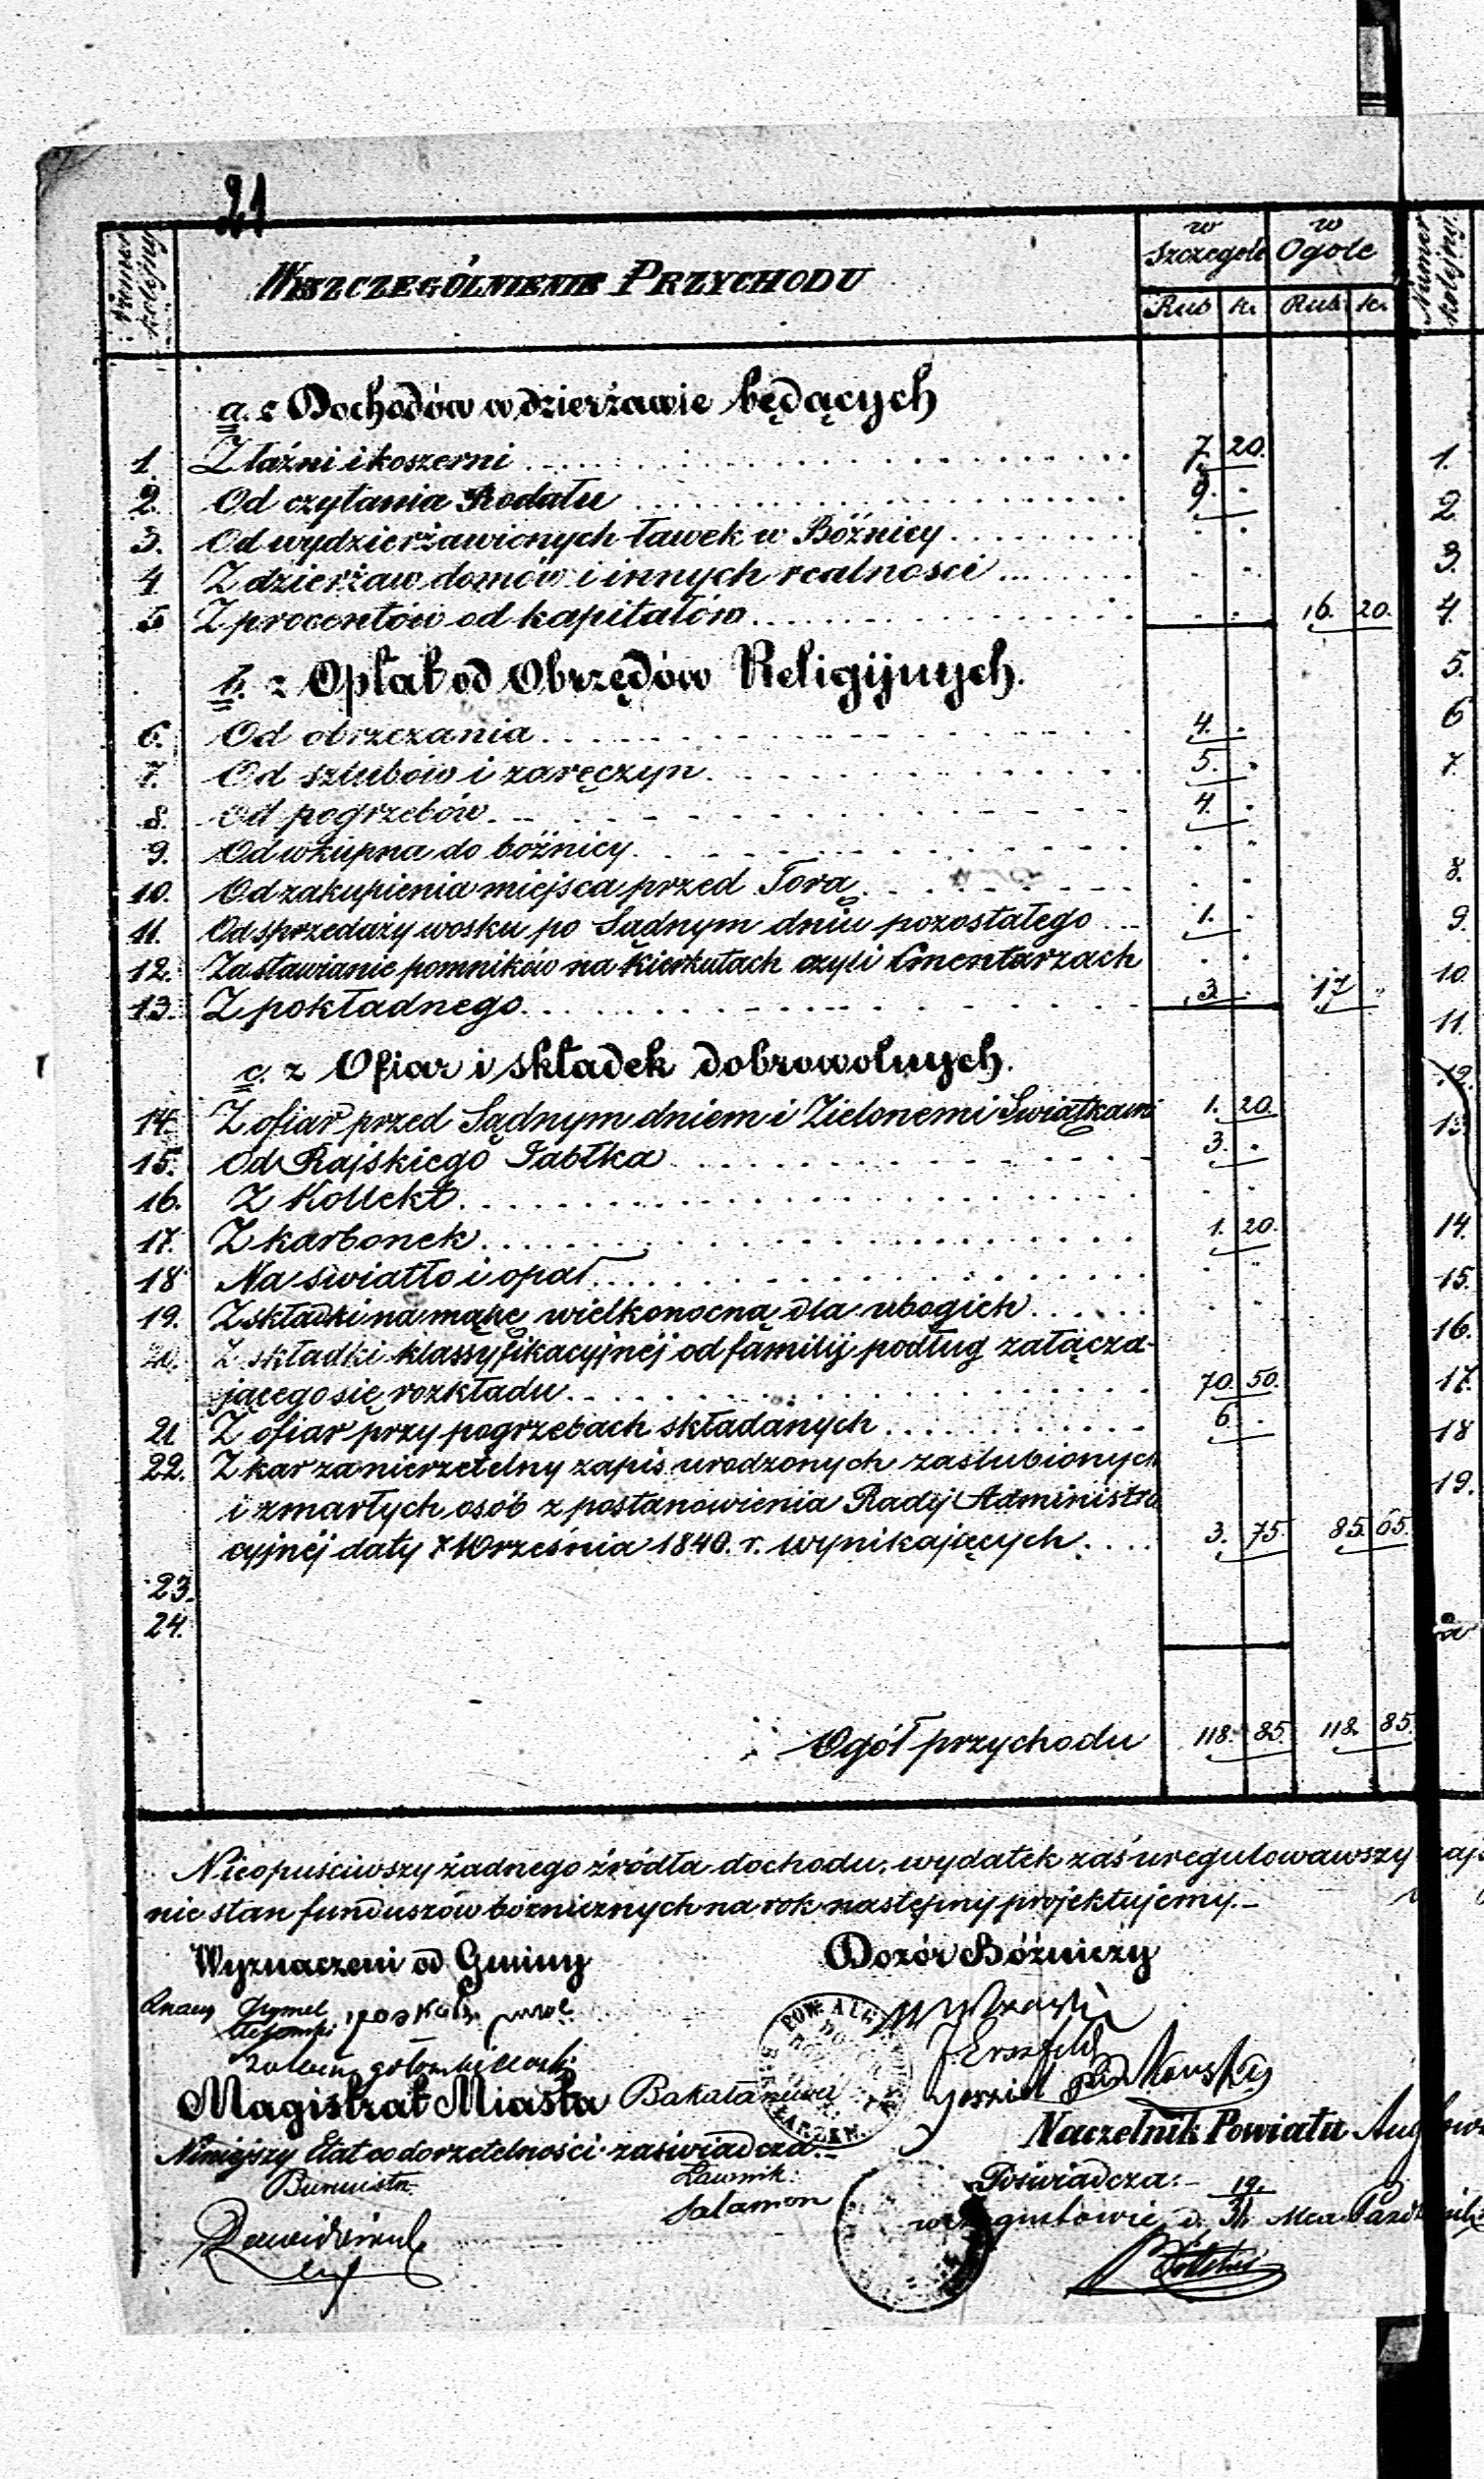 21
Numer kolejny
WYSZCZEGÓLNIENIE PRZYCHODU
w Szczegole
w Ogole
Rub. k. Rub. k.
Numer kolejny.
a. z Dochodów w dzierżawie będących
1. Z łaźni i koszerni 7. 20.
2. Od czytania Rodału 9. -
3. Od wydzierżawionych ławek w Bóźnicy
4 Z dzierżaw domów i innych realności
5 Z procentów od kapitałów 16. 20.
b. z Opłat od Obrzędów Religijnych.
6. Od obrzezania 4. -
7. Od szlubów i zaręczyn 5. -
8. Od pogrzebów 4. -
9. Od wkupna do bóźnicy
10. Od zakupienia miejsca przed Torą
11. Od sprzedaży wosku po Sądnym dniu pozostałego 1. -
12. Za stawianie pomników na Kierkutach czyli Cmentarzach
13. Z pokładnego 3. - 17 -
c. z Ofiar i składek dobrowolnych.
14. Z ofiar przed Sądnym dniem i Zielonemi Swiątkami 1. 20
15. Od Rajskiego Jabłka 3. -
16. Z Kollekt
17. Z karbonek 1. 20.
18 Na swiatło i opał
19. Z składki na mąkę wielkonocną dla ubogich
20. Z składki klassyfikacyjnéj od familij podług załącza-
jącego się rozkładu 70. 50.
21 Z ofiar przy pogrzebach składanych 6 -
22. Z kar za nierzetelny zapis urodzonych zaślubionych
i zmarłych osób z postanowienia Rady Administra
cyjnéj daty 7 Września 1840. r. wynikających 3. 75. 85. 65.
23.
24.
Ogół przychodu 118. 85. 118. 85.
Nieopuściwszy żadnego źródła dochodu, wydatek zaś uregulowawszy
nie stan funduszów bóżnicznych na rok następny projektujemy.–
Wyznaczeni od Gminy
Dozór Bóżniczy
Magistrat Miasta Bakałarzewa
Niniejszy Etat co do rzetelności zaświadcza.–
Naczelnik Powiatu
Burmistrz
Ławnik:
Salamon
Poświadcza:–
19
31
1.
2.
3.
4.
5.
6
7.
8.
9.
10
11.
12.
13
14.
15.
16.
17.
18
19.